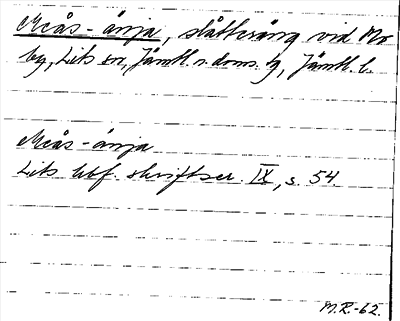 Mås-änja, slåtteräng vid Mo
by, Lits sn, Jämtl. n. doms. tg, Jämtl. l.
Mås-änja
Lits hbf. skriftser. IX, s. 54.
M.R.-62.